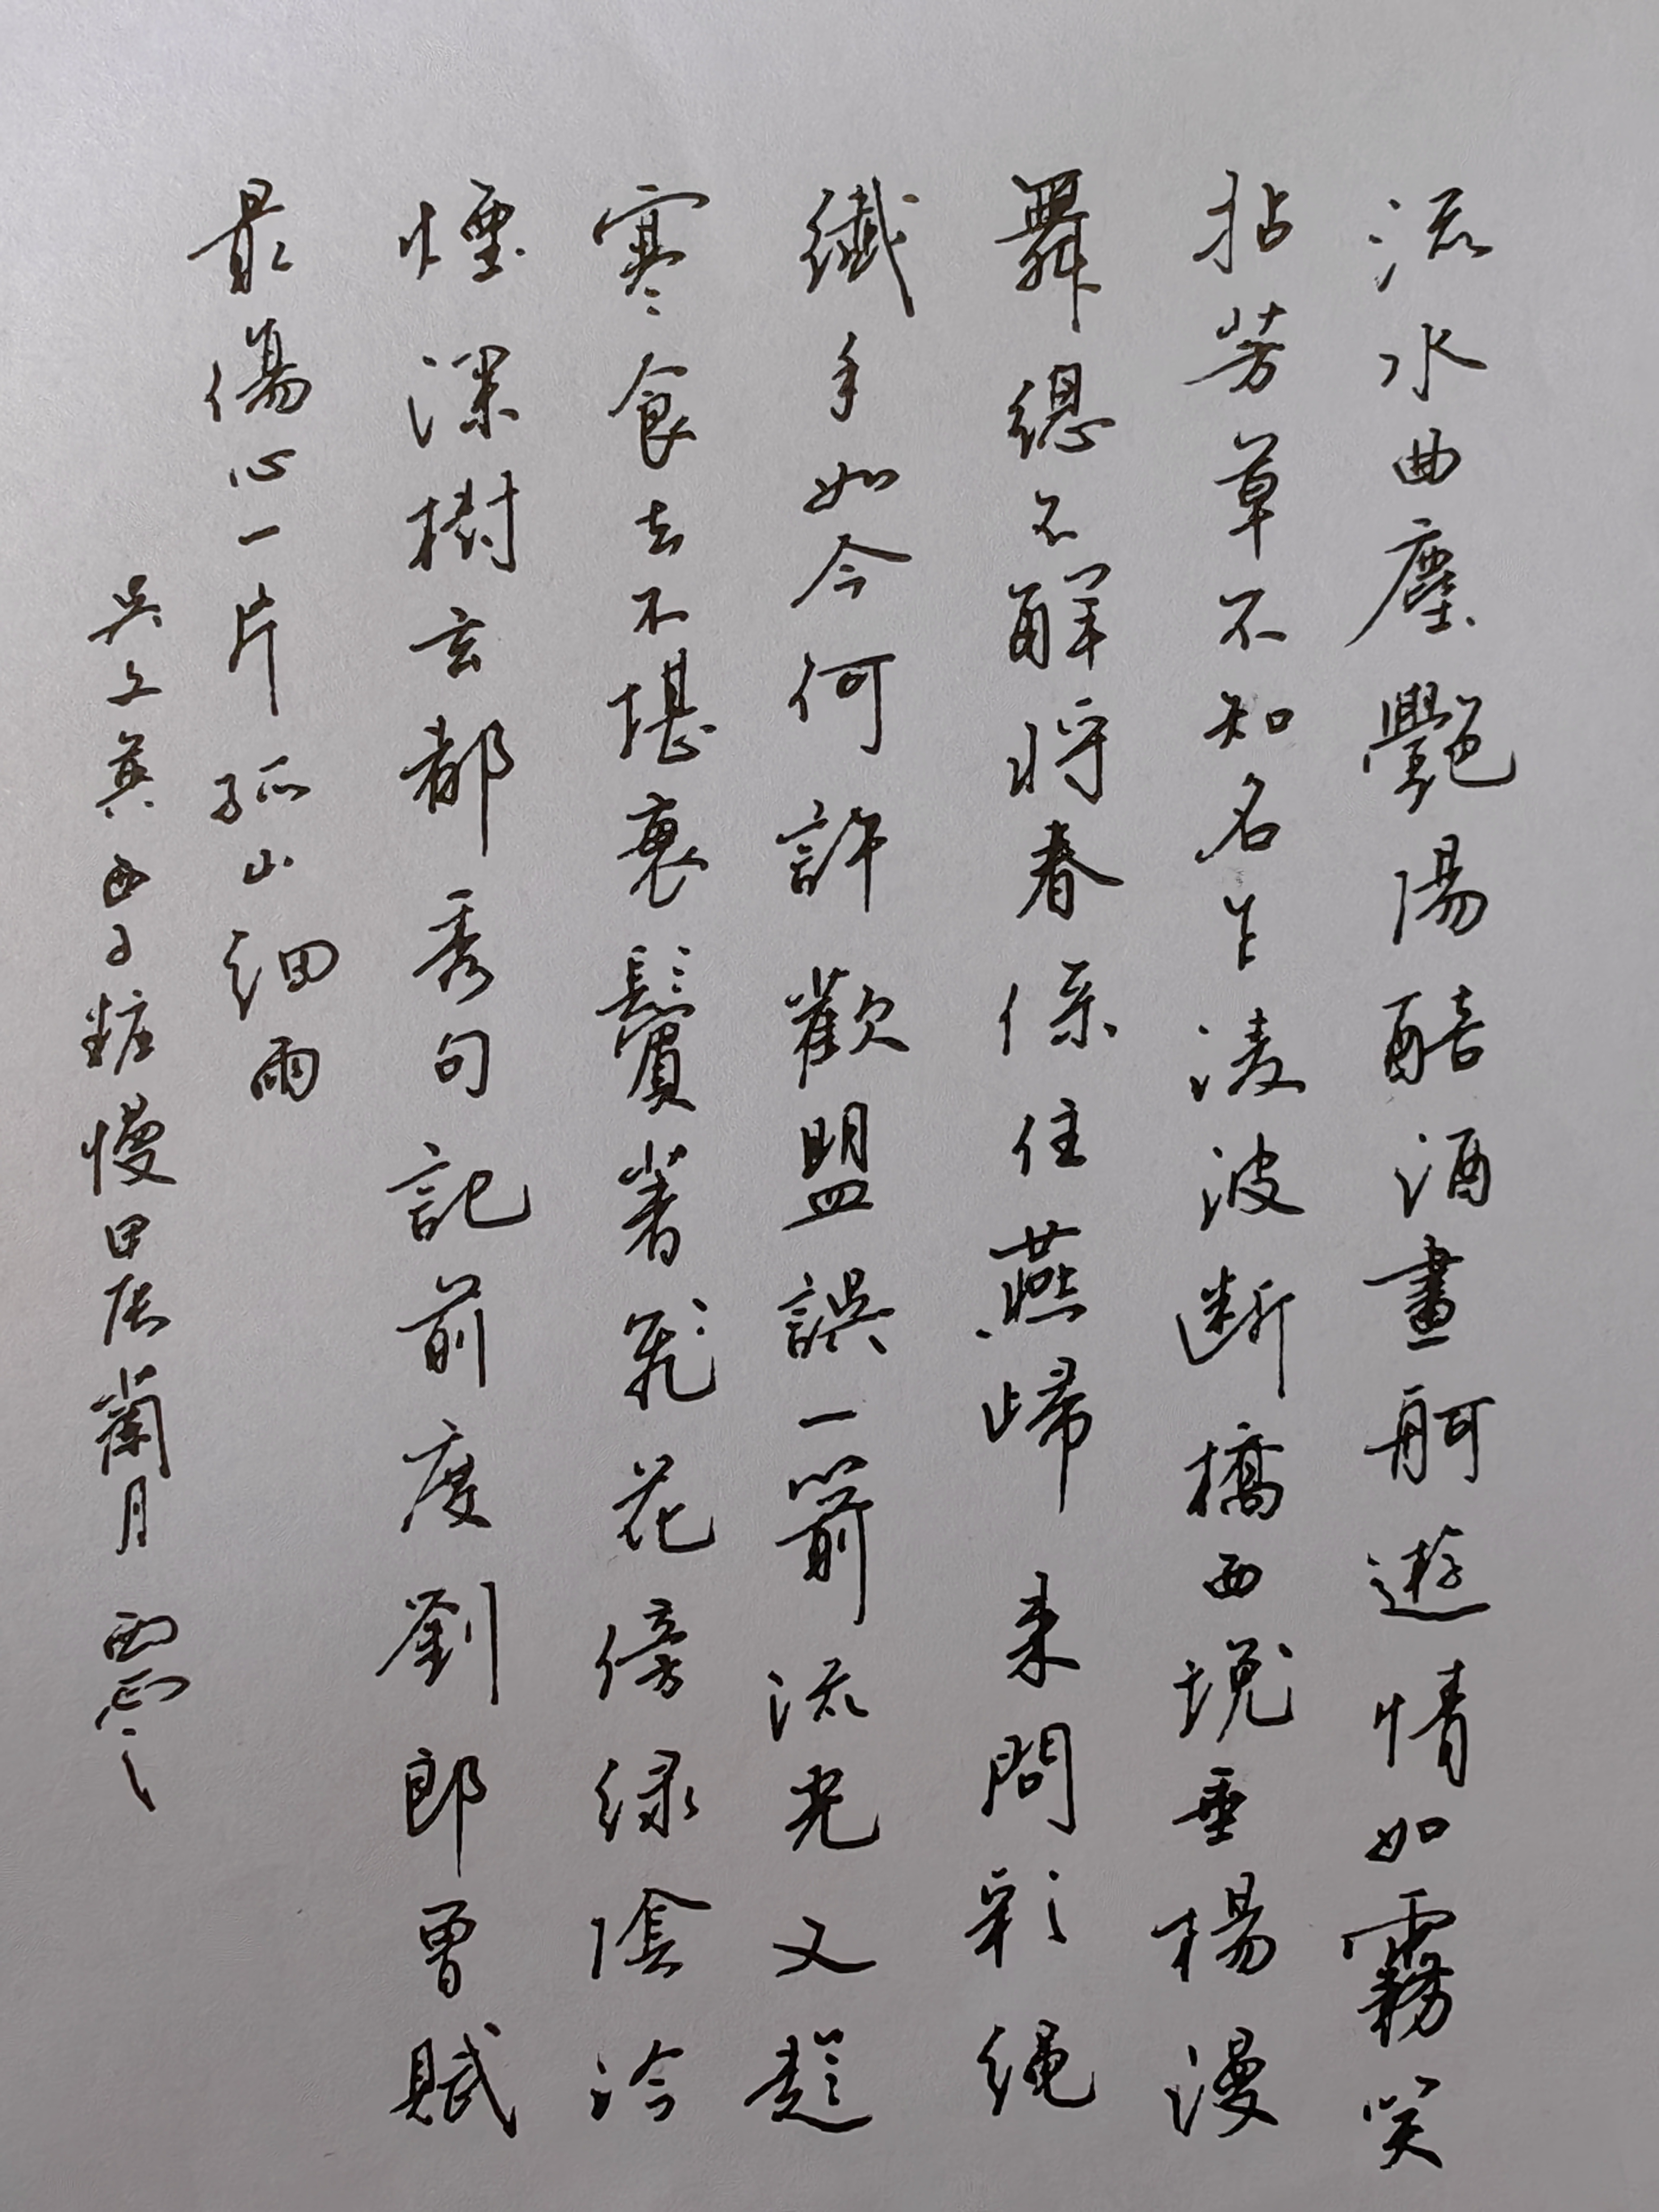 流水曲塵艷陽醅酒畫舸遊情如霧笑
拈芳草不知名乍凌波断橋西堍垂楊漫
舞總不解将春係住燕歸来問彩繩
纖手如今何許歡盟誤一箭流光又趁
寒食去不堪衰鬢著飛花傍緑陰冷
煙深樹玄都秀句記前度劉郎曾賦
最傷心一片孤山細雨
吳文英西子粧慢甲辰蘭月